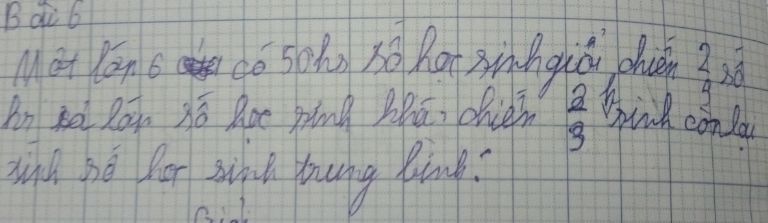 Bài 6
Một lớp 6 có 50hs số học sinh giỏi chiến 2 số
hs cả lớp số học sinh khá, chiến 2/3 h sinh còn lại
tính số học sinh trung bình?
Giải